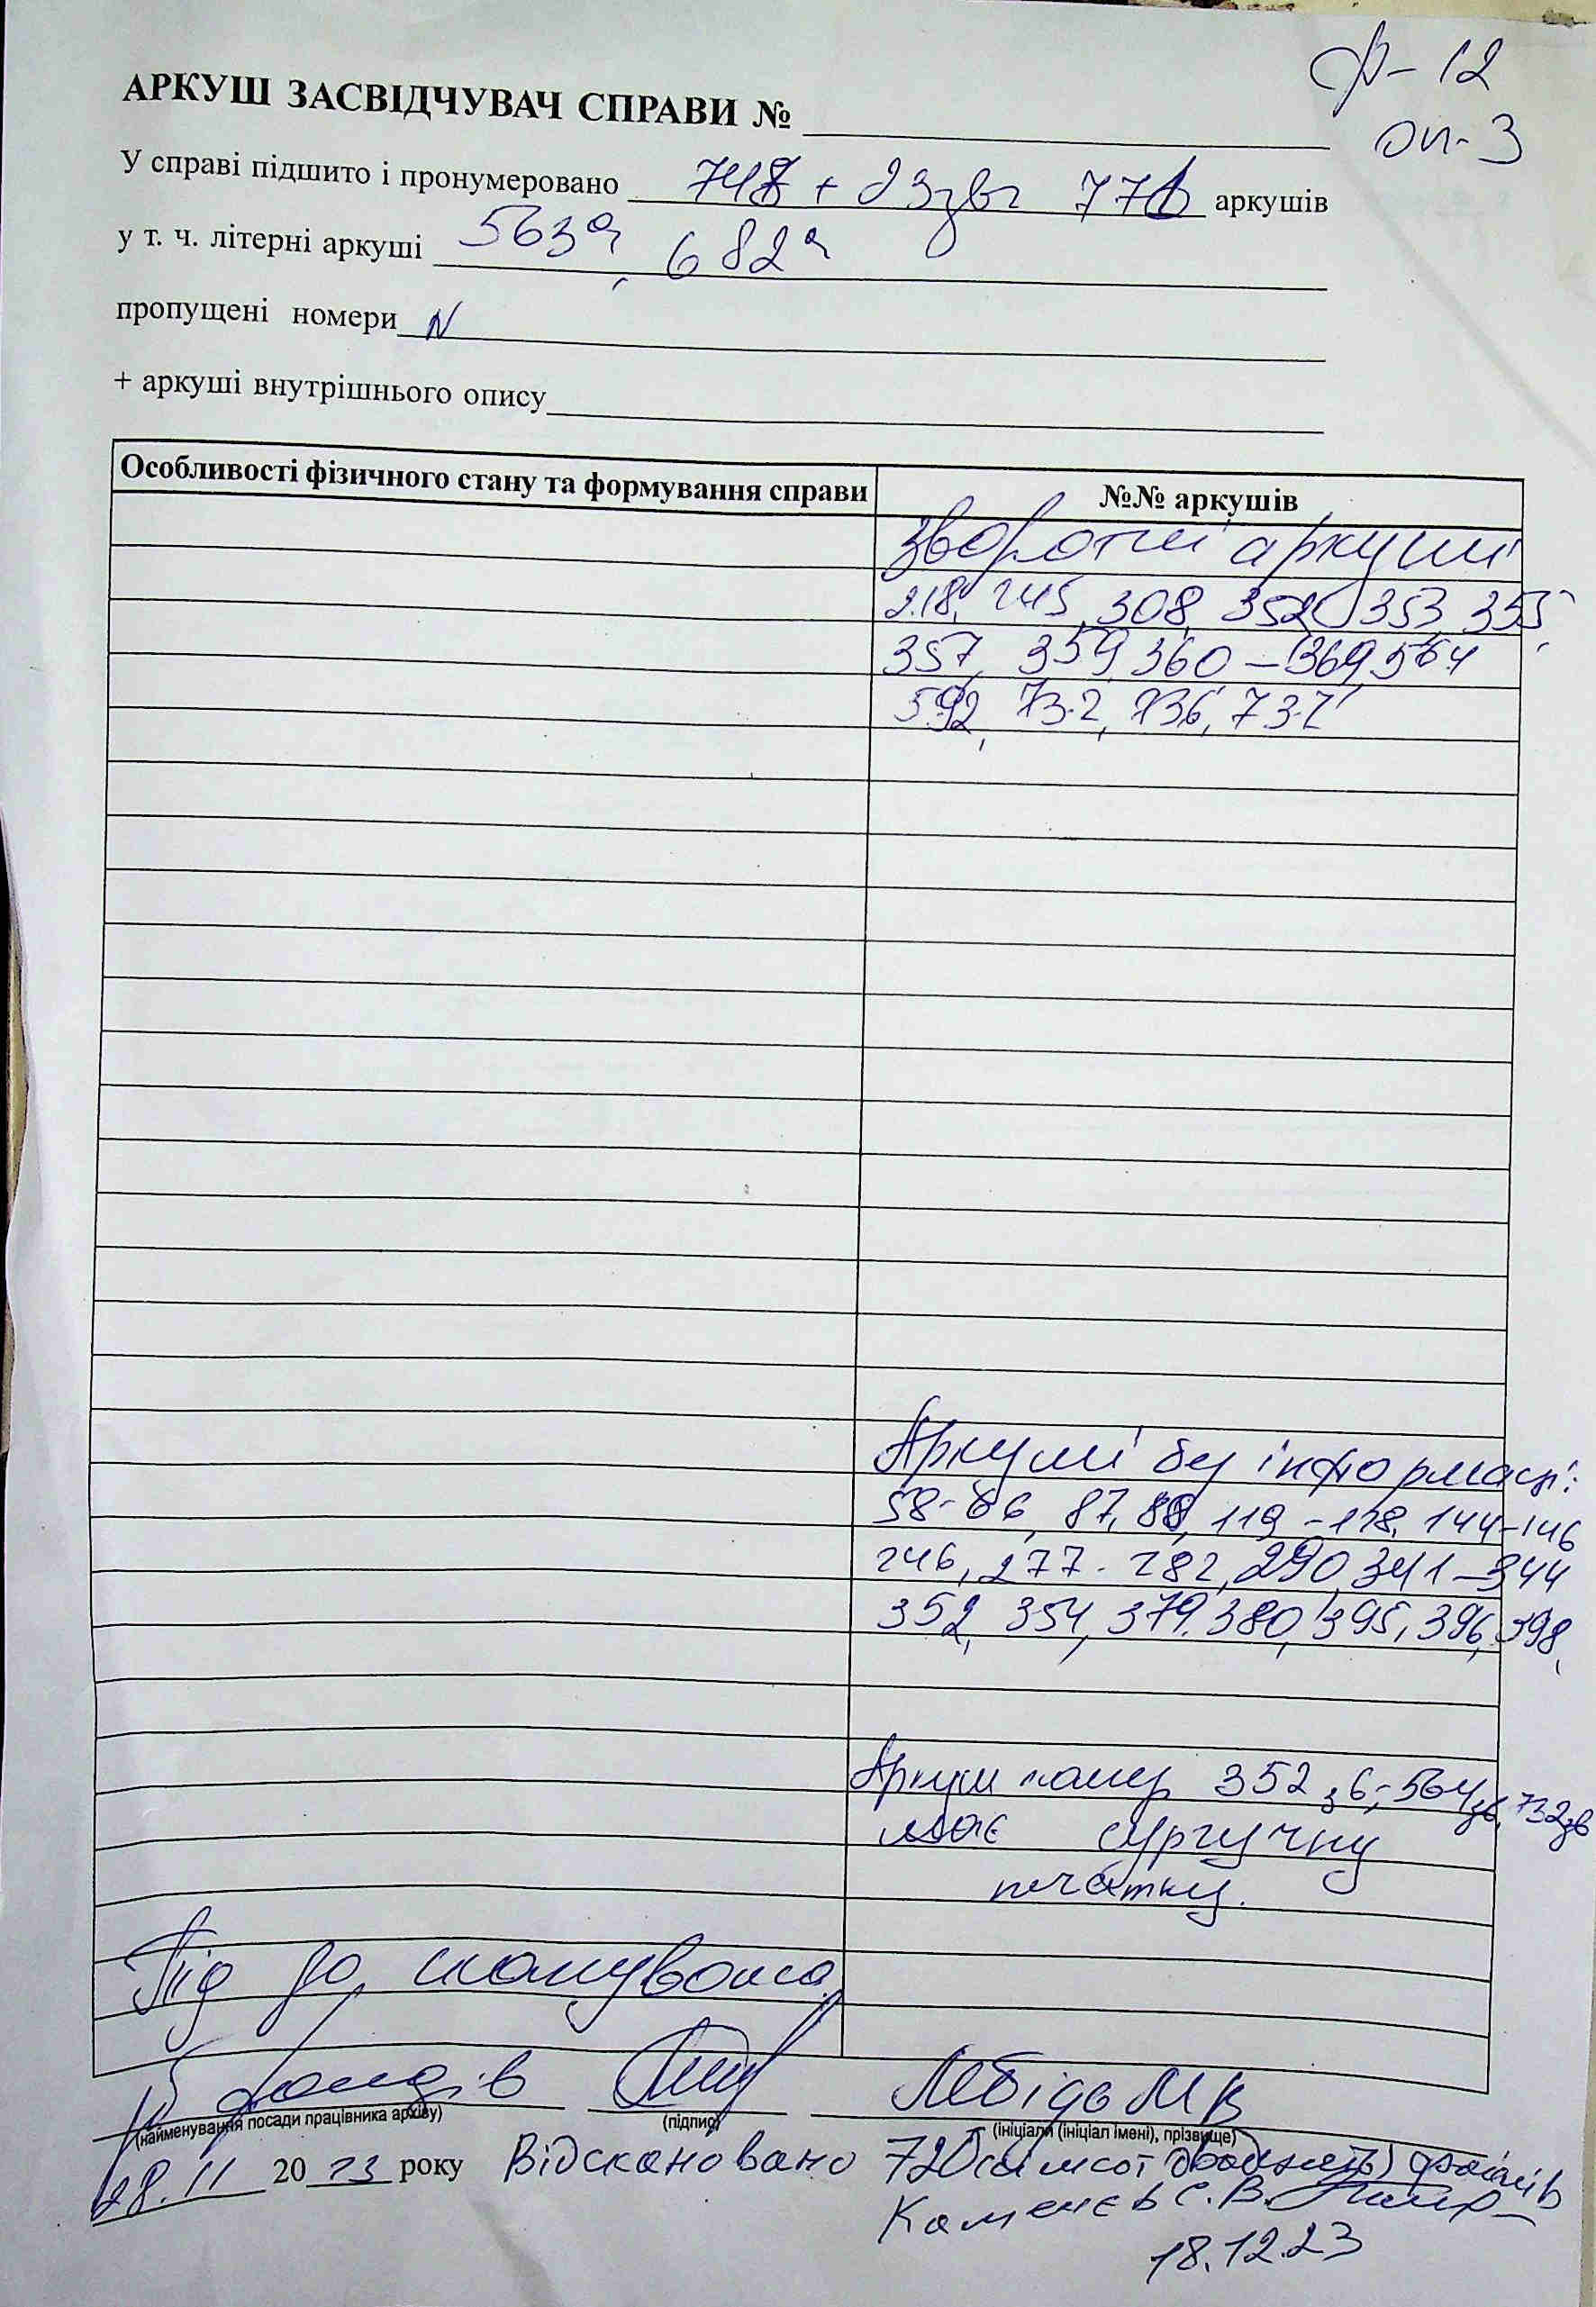 ф-12
оп-3
АРКУШ ЗАСВІДЧУВАЧ СПРАВИ №
У справі підшито і пронумеровано 748 + 23зв 771 аркушів
у т. ч. літерні аркуші 563а, 682а
пропущені номери N
+ аркуші внутрішнього опису
Особливості фізичного стану та формування справи №№ аркушів
Зворотні аркуші
218, 245, 308, 352, 353, 355,
357, 359, 360-369, 564
592, 732, 736, 737
Аркуші без інформації:
58-66, 87, 88, 119-128, 144-146
246, 277-282, 290, 341-344
352, 354, 379, 380, 395, 396, 398,
Аркуш номер 352 зв; 564зв, 732зв
має сургучну
печатку.
Під до сканування
фондів Лебідь М В
(найменування посади працівника архіву) (підпис) (ініціали (ініціал імені), прізвище)
28.11 2023 року Відскановано 720 (сімсот двадцять) файлів
Каменєв С.В.
18.12.23